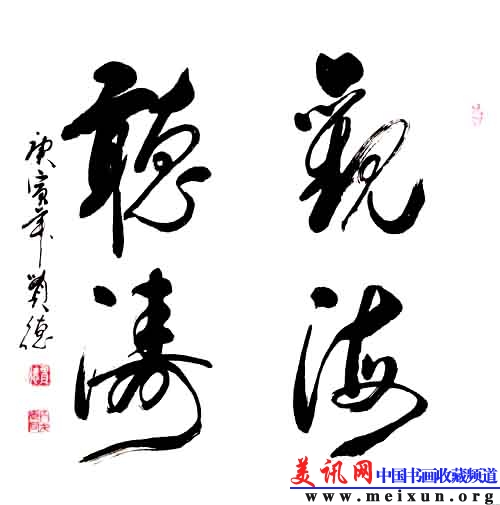 觀海
聽濤
庚寅年賢德
美讯网 中国书画收藏频道
www.meixun.org